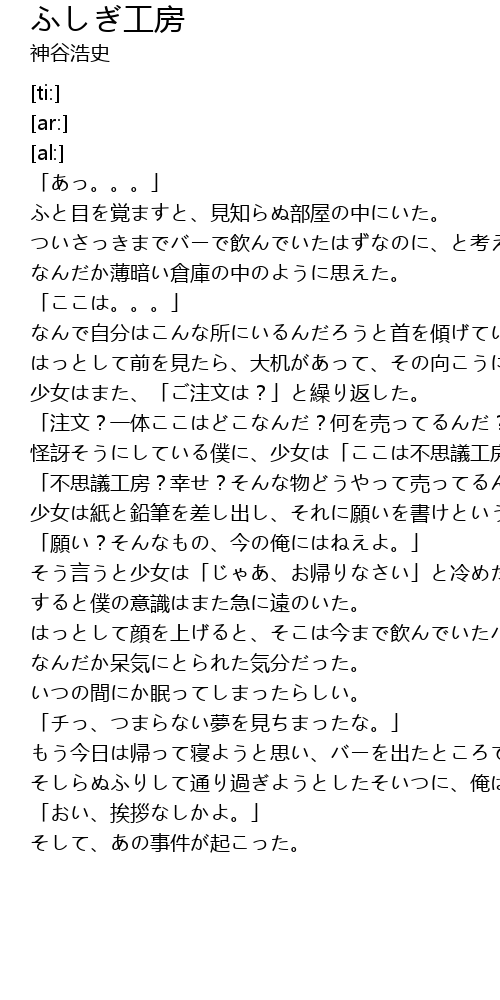 ふしぎ工房
神谷浩史
[ti:]
[ar:]
[al:]
「あっ。。。」
ふと目を覚ますと、見知らぬ部屋の中にいた。
ついさっきまでバーで飲んでいたはずなのに、と考え
なんだか薄暗い倉庫の中のように思えた。
「ここは。。。」
なんで自分はこんな所にいるんだろうと首を傾げてい
はっとして前を見たら、大机があって、その向こうに
少女はまた、「ご注文は？」と繰り返した。
「注文？一体ここはどこなんだ？何を売ってるんだ？
怪訝そうにしている僕に、少女は「ここは不思議工房
「不思議工房？幸せ？そんな物どうやって売ってるん
少女は紙と鉛筆を差し出し、それに願いを書けという
「願い？そんなもの、今の俺にはねえよ。」
そう言うと少女は「じゃあ、お帰りなさい」と冷めた
すると僕の意識はまた急に遠のいた。
はっとして顔を上げると、そこは今まで飲んでいたバ
なんだか呆気にとられた気分だった。
いつの間にか眠ってしまったらしい。
「チっ、つまらない夢を見ちまったな。」
もう今日は帰って寝ようと思い、バーを出たところで
そしらぬふりして通り過ぎようとしたそいつに、俺は
「おい、挨拶なしかよ。」
そして、あの事件が起こった。